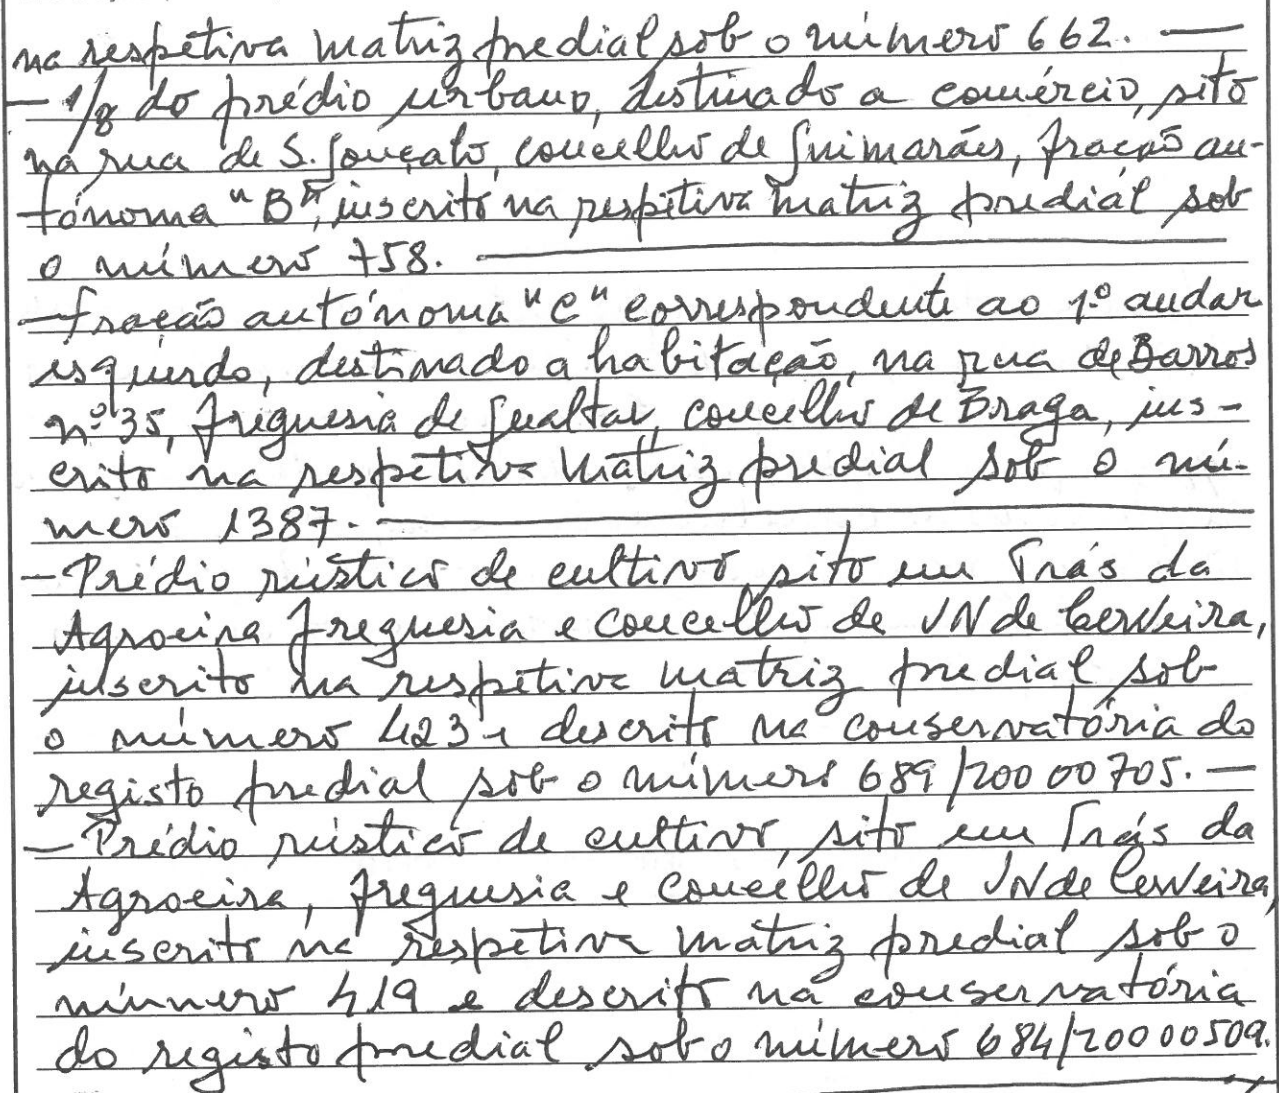 na respetiva matriz predial sob o número 662. —
— 1/8 do prédio urbano, destinado a comércio, sito
na rua de S. Gonçalo, concelho de Guimarães, fração au-
tónoma "B", inscrito na respetiva matriz predial sob
o número 758. —
— fração autónoma "C" correspondente ao 1º andar
esquerdo, destinado a habitação, na rua de Barros
nº 35, freguesia de Gualtar, concelho de Braga, ins-
crito na respetiva matriz predial sob o nú-
mero 1387. —
— Prédio rústico de cultivo, sito em Trás da
Agroeira freguesia e concelho de VN de Cerveira,
inscrito na respetiva matriz predial sob
o número 423 e descrito na conservatória do
registo predial sob o número 689/20000705. —
— Prédio rústico de cultivo, sito em Trás da
Agroeira, freguesia e concelho de VN de Cerveira,
inscrito na respetiva matriz predial sob o
número 419 e descrito na conservatória
do registo predial sob o número 684/20000509.